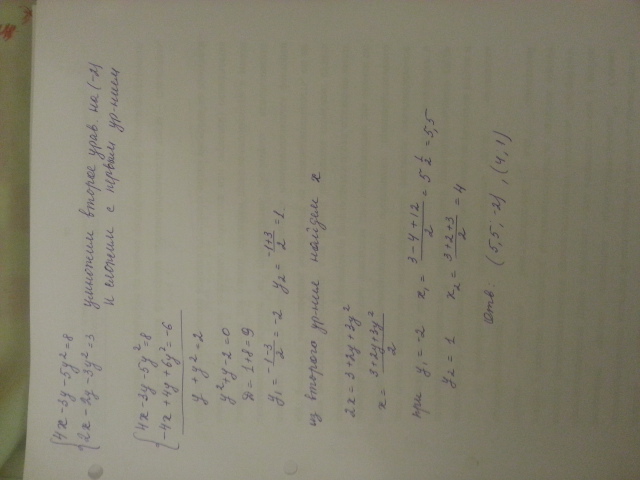 {4x-3y-5y²=8 умножим второе урав. на (-2)
{2x-2y-3y²=3 и сложим с первым ур-нием
{4x-3y-5y²=8
{-4x+4y+6y²=-6
y+y²=2
y²+y-2=0
D=1+8=9
y₁=(-1-3)/2=-2 y₂=(-1+3)/2=1
из второго ур-ния найдем x
2x=3+2y+3y²
x=(3+2y+3y²)/2
при y₁=-2 x₁=(3-4+12)/2=5 1/2=5,5
y₂=1 x₂=(3+2+3)/2=4
Отв. (5,5; -2), (4, 1)